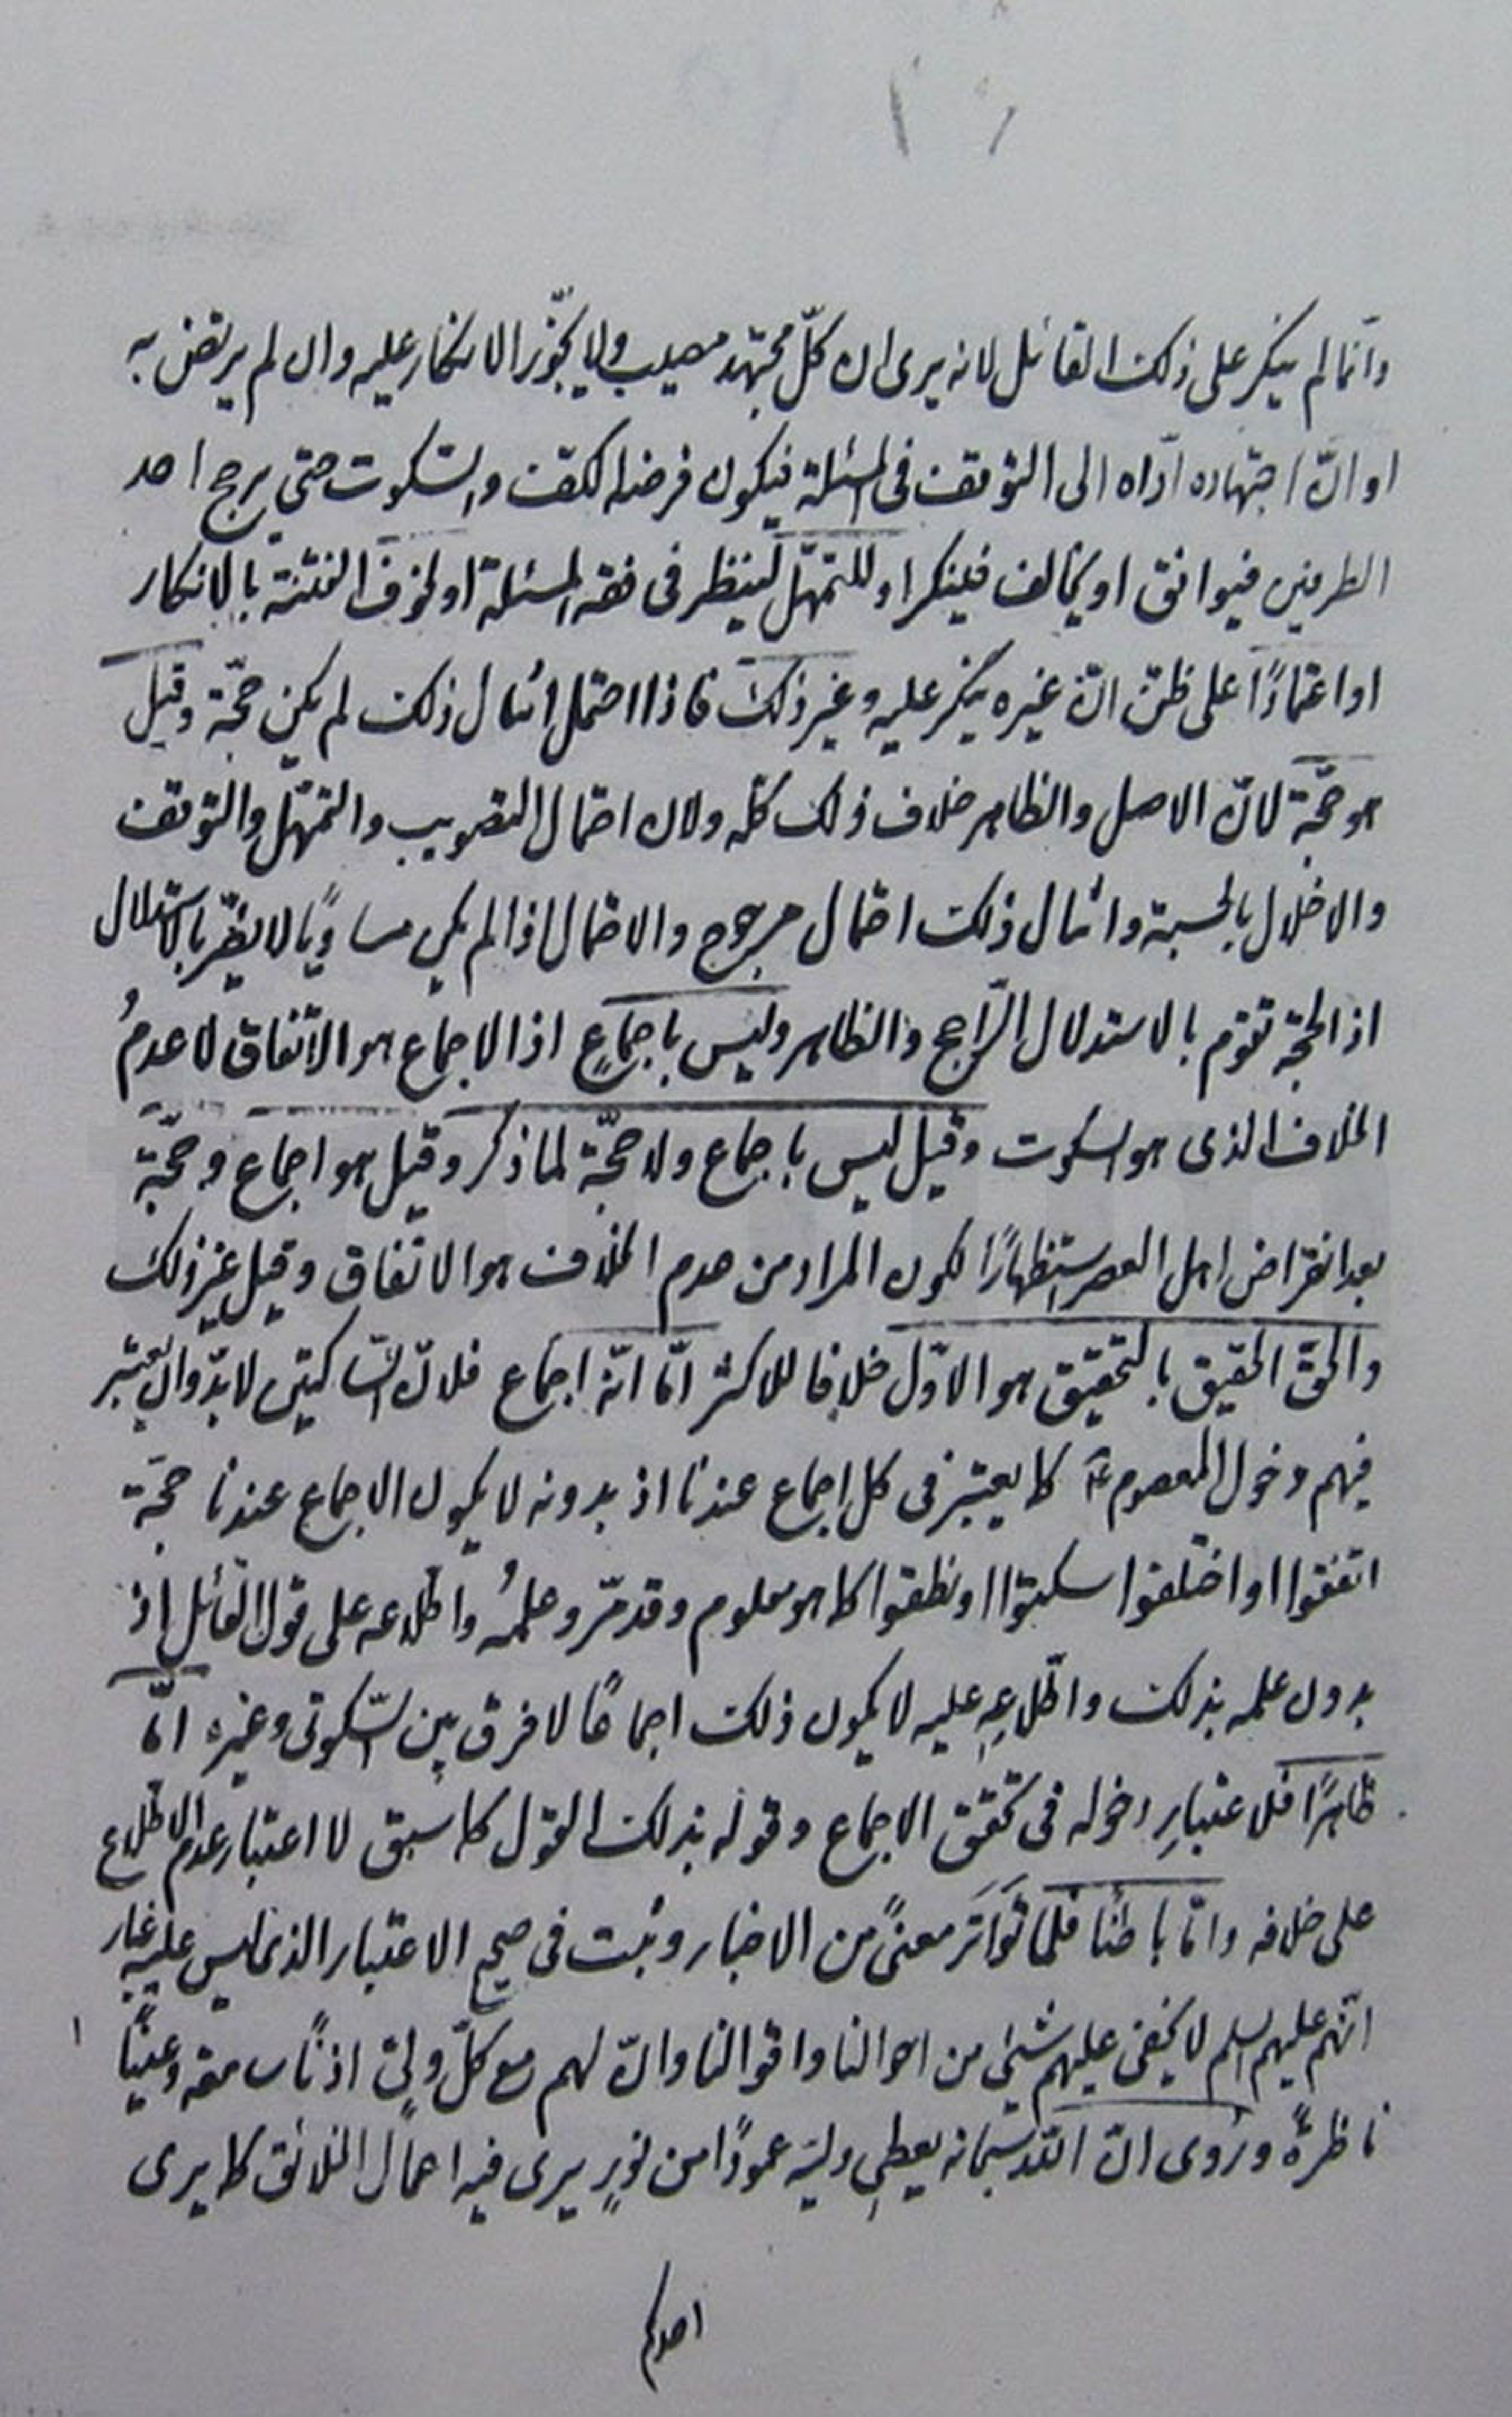 وانّما لم ينكر على ذلك القائل لانه يرى ان كلّ مجتهد مصيب ولا يجوّز الانكار عليه وان لم يرتض به
او انّ اجتهاده ادّاه الى التوقف فى المسئلة فيكون فرضه الكفّ والسّكوت حتى يرجح احد
الطرفين فيوافق او يخالف فينكر او للتمهّل لينظر فى فقه المسئلة او لخوف الفتنة بالانكار
او اعتمادًا على ظنّ انّ غيره ينكر عليه وغير ذلك فاذا احتمل امثال ذلك لم يكن حجّة وقيل
هو حجّة لانّ الاصل والظاهر خلاف ذلك كلّه ولان احتمال التصويب والتمهّل والتوقف
والاخلال بالحسبة وامثال ذلك احتمال مرجوح والاحتمال اذا لم يكن مساويًا لا يضرّ بالاستدلال
اذ الحجّة تقوم بالاستدلال الرّاجح والظاهر وليس باجماعٍ اذ الاجماع هو الاتّفاق لا عدمُ
الخلاف الذى هو السكوت وقيل ليس باجماع ولا حجّة لما ذكر وقيل هو اجماع وحجّة
بعد انقراض اهل العصر استظهارًا لكون المراد من عدم الخلاف هو الاتفاق وقيل غير ذلك
والحقّ الحقيق بالتحقيق هو الاوّل خلافا للاكثر امّا انّه اجماع فلانّ السّاكتين لا بدّ وان يعتبر
فيهم دخول المعصوم ع كما يعتبر فى كل اجماع عندنا اذ بدونه لا يكون الاجماع عندنا حجّة
اتفقوا او اختلفوا سكتوا او نطقوا كما هو معلوم وقد مرّ وعلمُه واطلاعه على قول القائل اذ
بدون علمه بذلك واطّلاعِه عليه لا يكون ذلك اجماعًا لا فرق بين السّكوتى وغيره امّا
ظاهرًا فلاعتبارِ دخوله فى تحقق الاجماع وقوله بذلك القول كما سبق لا اعتبار عدم الاطلاع
على خلافه وامّا باطنًا فلما تواتَرَ معنىً من الاخبار وثبت فى صحيح الاعتبار الذى ليس عليه غبار
انّهم عليهم السلم لا يخفى عليهم شىء من احوالنا واقوالنا وانّ لهم مع كلّ ولىّ اذنًا سامعة وعينًا
ناظرةً ورُوى انّ اللّه سبحانه يعطِى وليّه عمودًا من نورٍ يرى فيه اعمال الخلائق كما يرى
احدكم